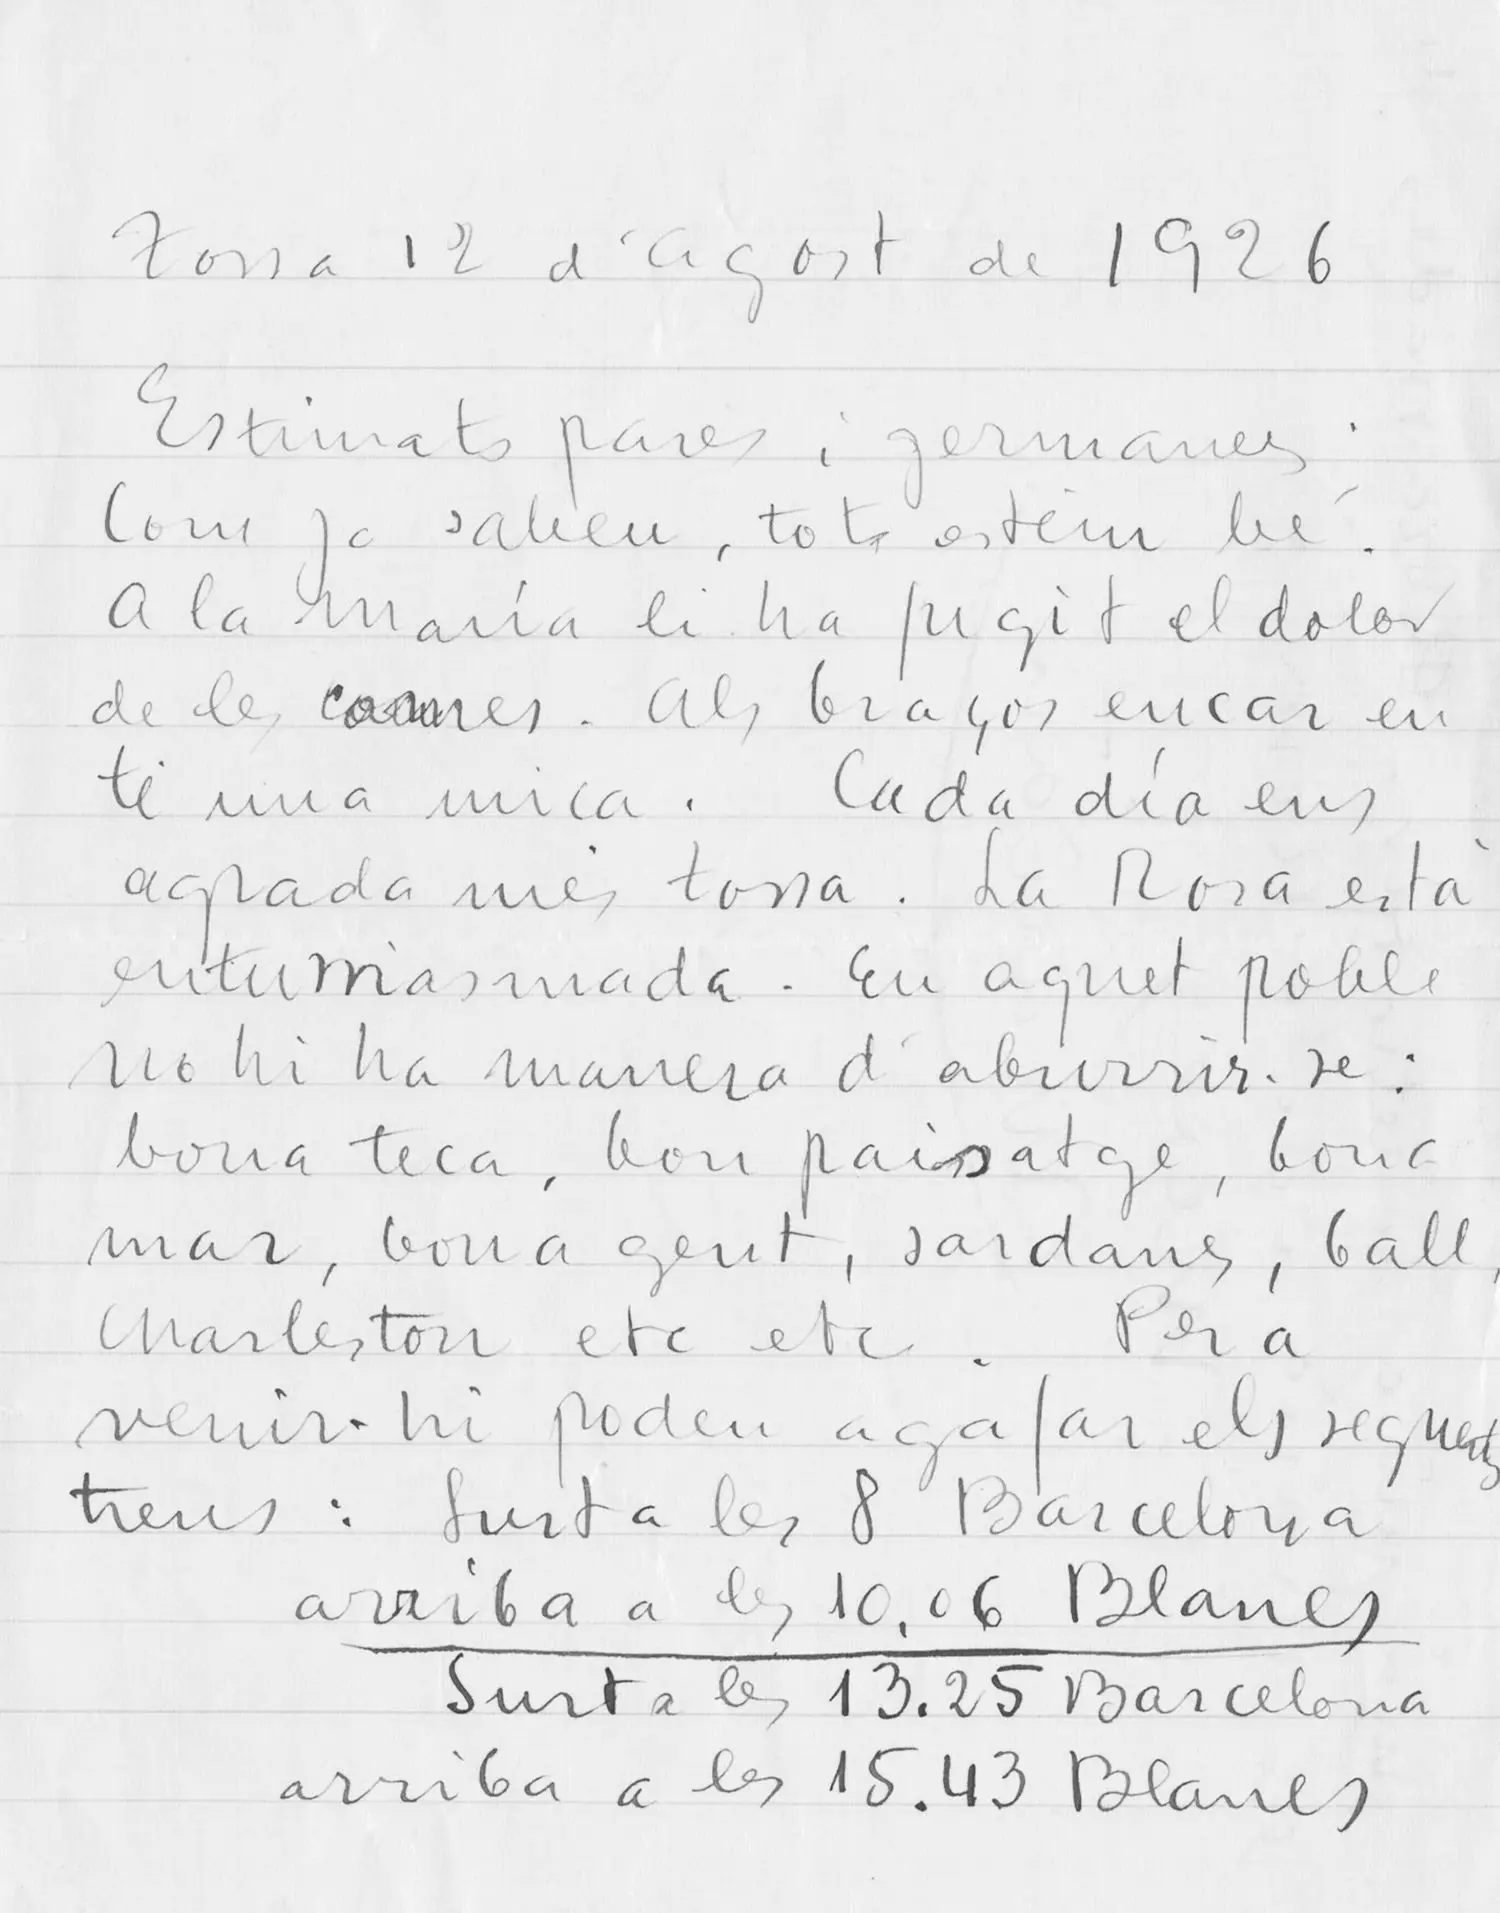 Tossa 12 d'agost de 1926
Estimats pares i germanes:
Com ja sabeu, tots estém bé.
A la María li ha fugit el dolor
de les cames. Als braços encar en
té una mica. Cada día ens
agrada més tossa. La Rosa està
enturriasmada. En aquet poble
no hi ha manera d'aburrir-se:
bona teca, bon paisatge, bona
mar, bona gent, sardanes, ball,
Charleston etc etc. Per a
venir-hi podeu agafar els seguents
trens: Surt a les 8 Barcelona
arriba a les 10.06 Blanes
Surt a les 13.25 Barcelona
arriba a les 15.43 Blanes